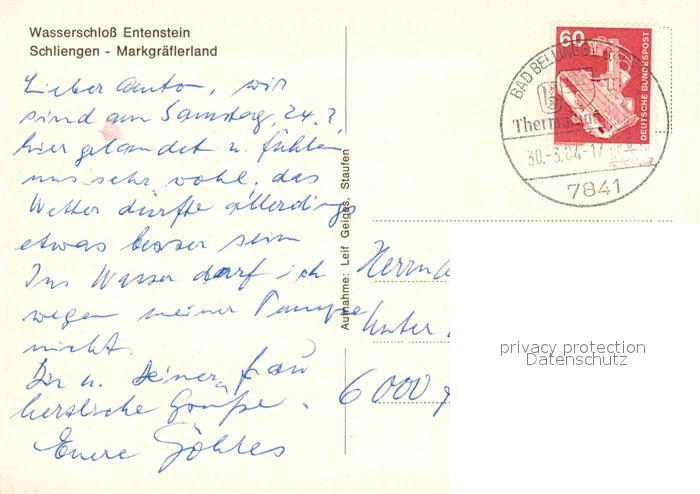 Wasserschloß Entenstein
Schliengen - Markgräflerland
Lieber Anton, wir
sind am Samstag, 24.3
hier gelandet u. fühlen
uns sehr wohl, das
Wetter dürfte allerdings
etwas besser sein
Ins Wasser darf ich
wegen meiner Pumpe
nicht.
Dir u. Deiner Frau
herzliche Grüße.
Eure
Aufnahme: Leif Geiges, Staufen
60
DEUTSCHE BUNDESPOST
BAD BELLINGEN
30.-3.84-17
7841
Herrn
Unter
6000
privacy protection
Datenschutz